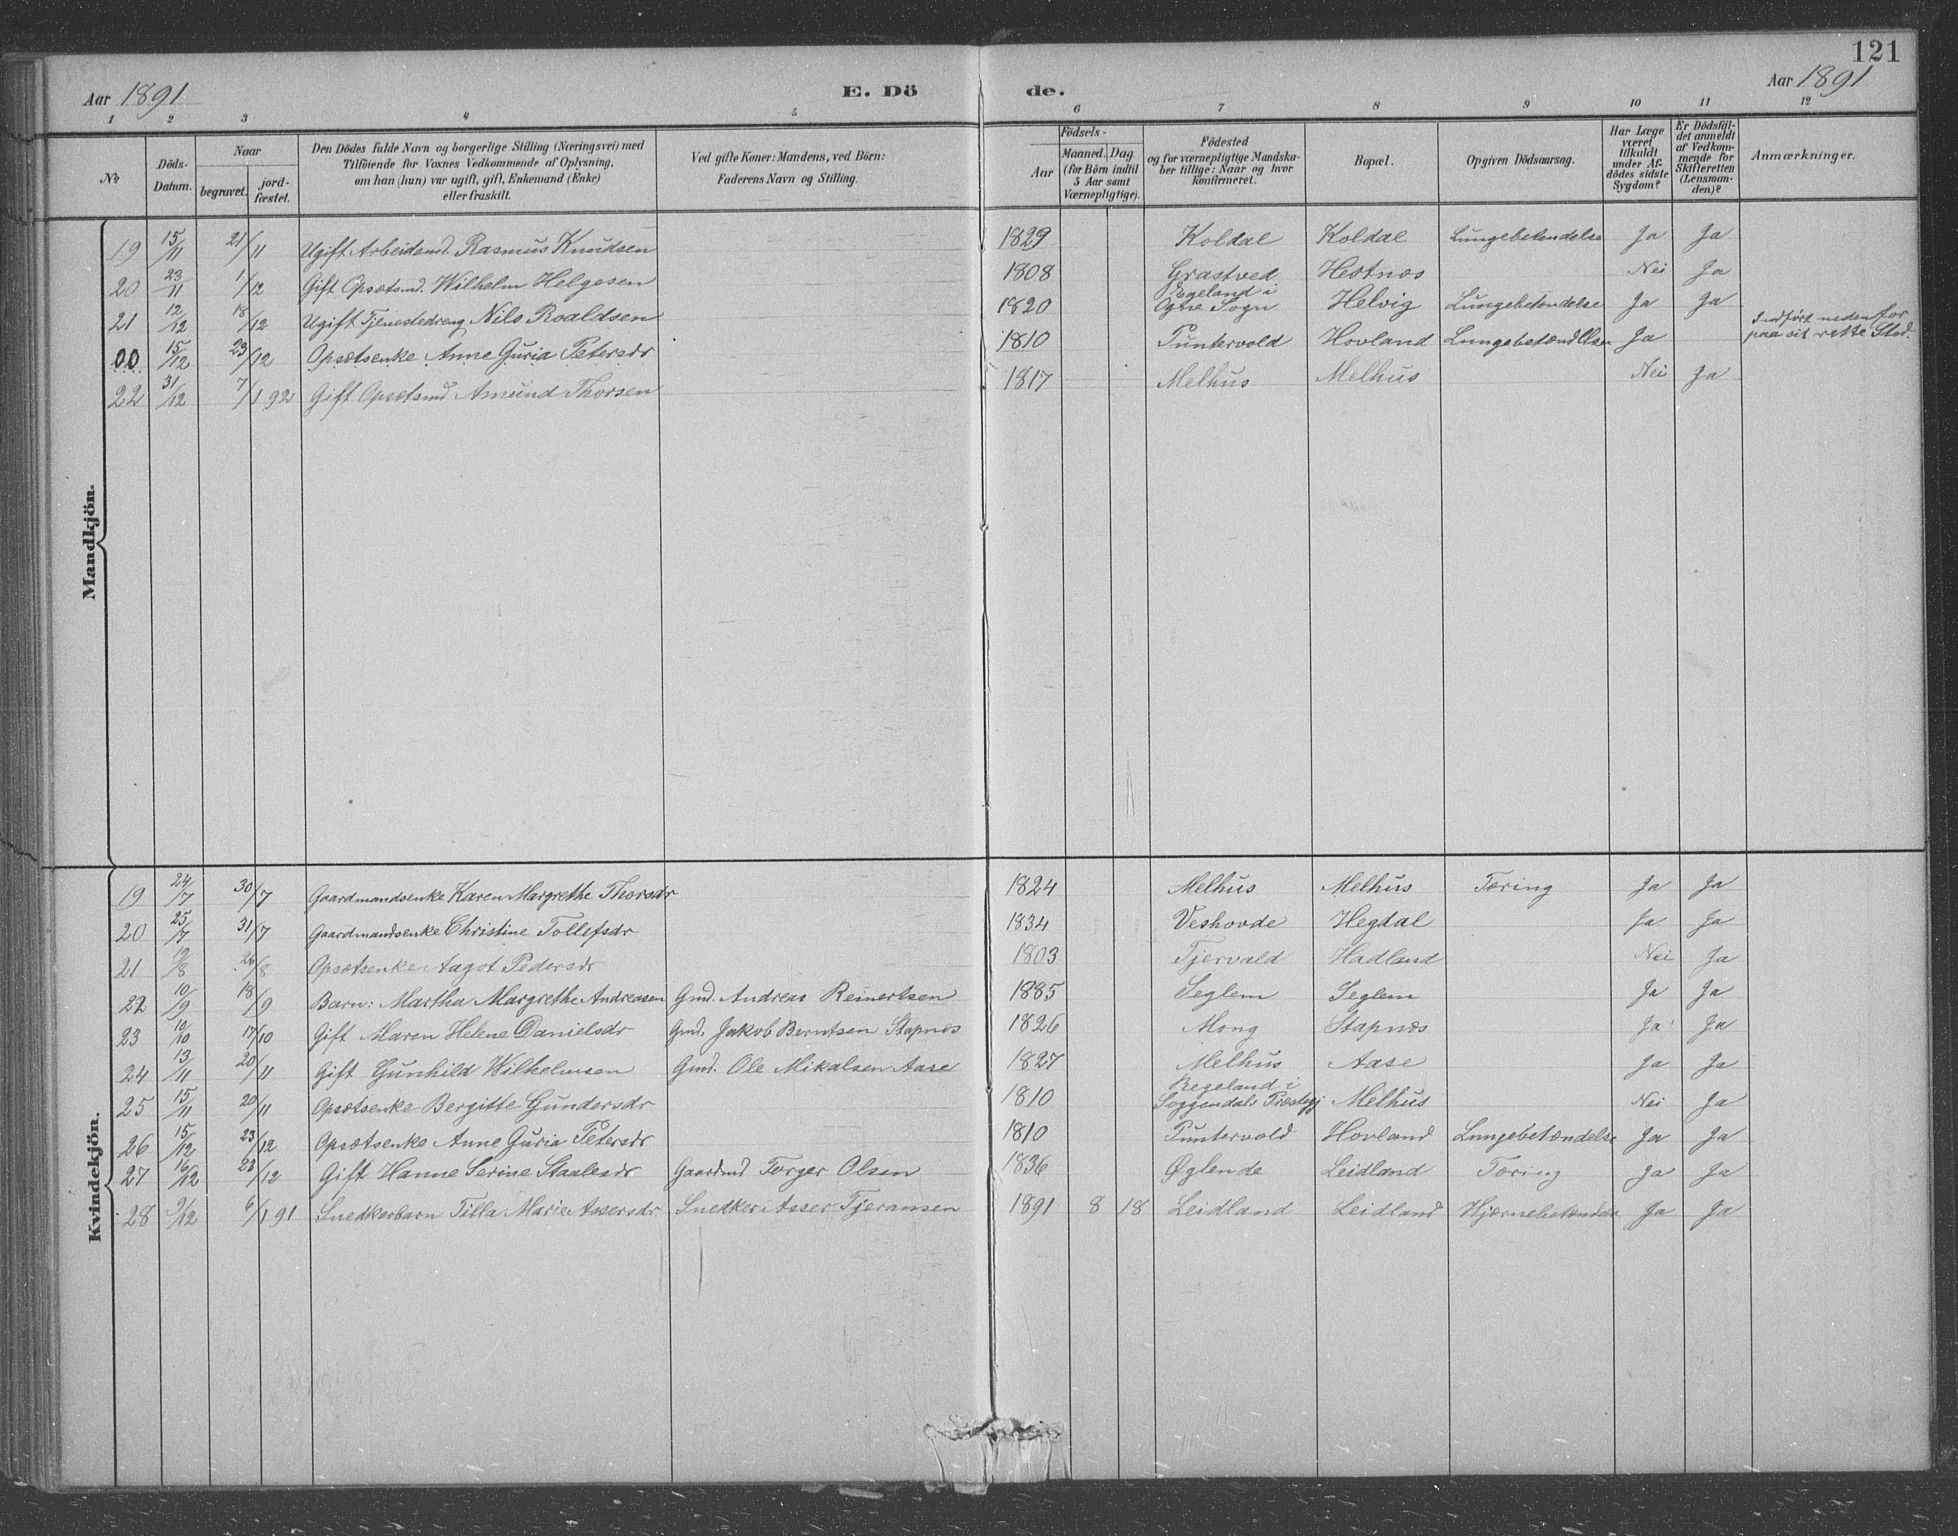 121
Aar 1891 E. Dö de. Aar 1891
1 2 3 4 5 6 7 8 9 10 11 12
№ Döds-Datum. Naar begravet. jordfæstet. Den Dödes fulde Navn og borgerlige Stilling (Næringsvei) med Tilföiende for Voxnes Vedkommende af Oplysning, om han (hun) var ugift, gift, Enkemand (Enke) eller fraskilt. Ved gifte Koner: Mandens, ved Börn: Faderens Navn og Stilling. Födsels- Aar Maaned. Dag (for Börn indtil 5 Aar samt Værnepligtige). Födested og for værnepligtige Mandskaber tillige: Naar og hvor konfirmeret. Bopæl. Opgiven Dödsaarsag. Har Læge været tilkaldt under Afdödes sidste Sygdom? Er Dödsfaldet anmeldt af Vedkommende for Skifteretten (Lensmanden)? Anmærkninger.
Mandkjön.
19 15/11 21/11 Ugift Arbeidsmd. Rasmus Knudsen 1829 Koldal Koldal Lungebetendelse Ja Ja
20 23/11 1/12 Gift Opsætsmd. Wilhelm Helgesen 1808 Grastved Hestnæs Nei Ja
21 12/12 18/12 Ugift Tjenestedreng Nils Roaldsen 1820 Egeland i Ogne Sogn Helvig Lungebetændelse Ja Ja
00 15/12 23/12 Opsætsenke Anne Guria Petersdr 1810 Puntervold Hovland Lungebetændelsen Ja Indført nedenfor paa sit rette Sted.
22 31/12 7/1 92 Gift Opsætsmd Amund Thorsen 1817 Melhus Melhus Nei Ja
Kvindekjön.
19 24/7 30/7 Gaardmandsenke Karen Margrethe Thorsdr 1824 Melhus Melhus Tæring Ja Ja
20 25/7 31/7 Gaardmandsenke Christine Tollefsdr 1834 Veshovde Hegdal Ja Ja
21 19/8 26/8 Opsætsenke Aagot Pedersdr 1803 Tjervald Hadland Nei Ja
22 10/9 18/9 Barn: Martha Margrethe Andreasen Gmd. Andreas Reinertsen 1885 Seglem Seglem Ja Ja
23 10/10 17/10 Gift Maren Helene Danielsdr Gmd. Jakob Berntsen Stapnæs 1826 Mong Stapnæs Ja Ja
24 13/11 20/11 Gift Gunhild Wilhelmsen Gmd. Ole Mikalsen Aase 1827 Melhus Aase Ja Ja
25 15/11 20/11 Opsætsenke Bergitte Gundersdr 1810 Regeland i Soggendals Præstegj Melhus Nei Ja
26 15/12 23/12 Opsætsenke Anne Guria Petersdr 1810 Puntervold Hovland Lungebetændelse Ja Ja
27 16/12 23/12 Gift Hanne Serine Staalesdr Gaardmd Torger Olsen 1836 Øglende Leidland Tæring Ja Ja
28 9/12 6/1 91 Snedkerbarn Tilla Marie Assersdr. Snedker Asser Tjeransen 1891 8 18 Leidland Leidland Hjærnebetændelse Ja Ja